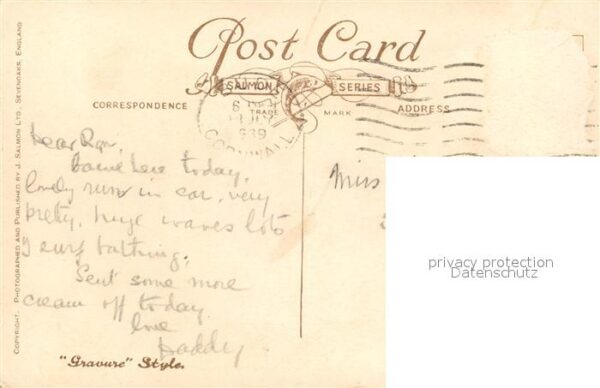 Post Card
SALMON SERIES
TRADE MARK
CORRESPONDENCE
ADDRESS
6
1939
CORNWALL
COPYRIGHT. PHOTOGRAPHED AND PUBLISHED BY J. SALMON LTD., SEVENOAKS, ENGLAND
Dear
Came here today,
lovely run in car, very
pretty, huge waves lots
surf bathing.
Sent some more
cream off today.
love
Daddy
Miss
"Gravure" Style.
privacy protection
Datenschutz